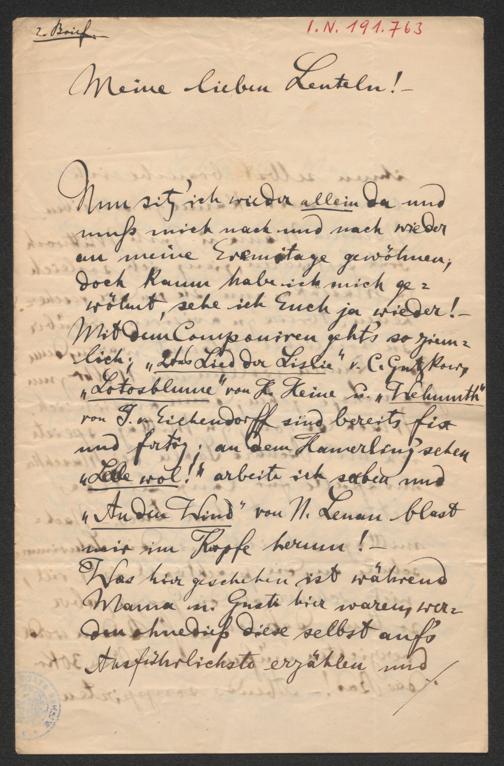 2. Brief.
I.N. 191.763
Meine lieben Leuteln! –
Nun sitz' ich wieder allein da und
muß mich nach und nach wieder
an meine Eremitage gewöhnen,
doch kaum habe ich mich ge=
wöhnt, sehe ich Euch ja wieder! –
Mit dem Componiren geht's so ziem=
lich; „2tes Lied der Lislie" v. C. Gutzkow,
„Lotosblume" von H. Heine u. „Wehmuth"
von J. v. Eichendorff sind bereits fix
und fertig; an dem Hamerling'schen
„Lebe wol!" arbeite ich soeben und
„An den Wind" von N. Lenau blast
mir im Kopfe herum! –
Was hier geschehen ist während
Mama u. Gusti hier waren, wer=
den ohnedieß diese selbst auf's
Ausführlichste erzählen und